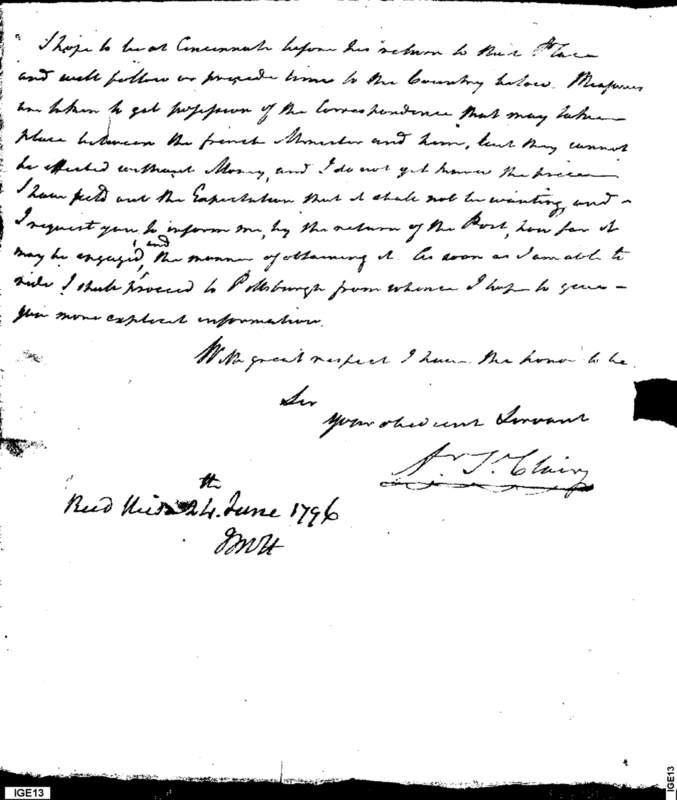 I hope to be at Cincinnati before his return to that Place
and will follow or precede him to the Country below. Measures
are taken to get possession of the Correspondence that may take
place between the french Minister and him, but they cannot
be effected without Money, and I do not yet know the precise
I have held out the Expectation that it shall not be wanting, and
I request you to inform me, by the return of the Post, how far it
may be engaged, and the manner of obtaining it. As soon as I am able to
ride I shall proceed to Pittsburgh from whence I hope to give
you more explicit information.
With great respect I have the honor to be
Sir
your obedient Servant
Ar. St. Clair
Recd this 24th June 1796
JMcH
IGE13
IGE13